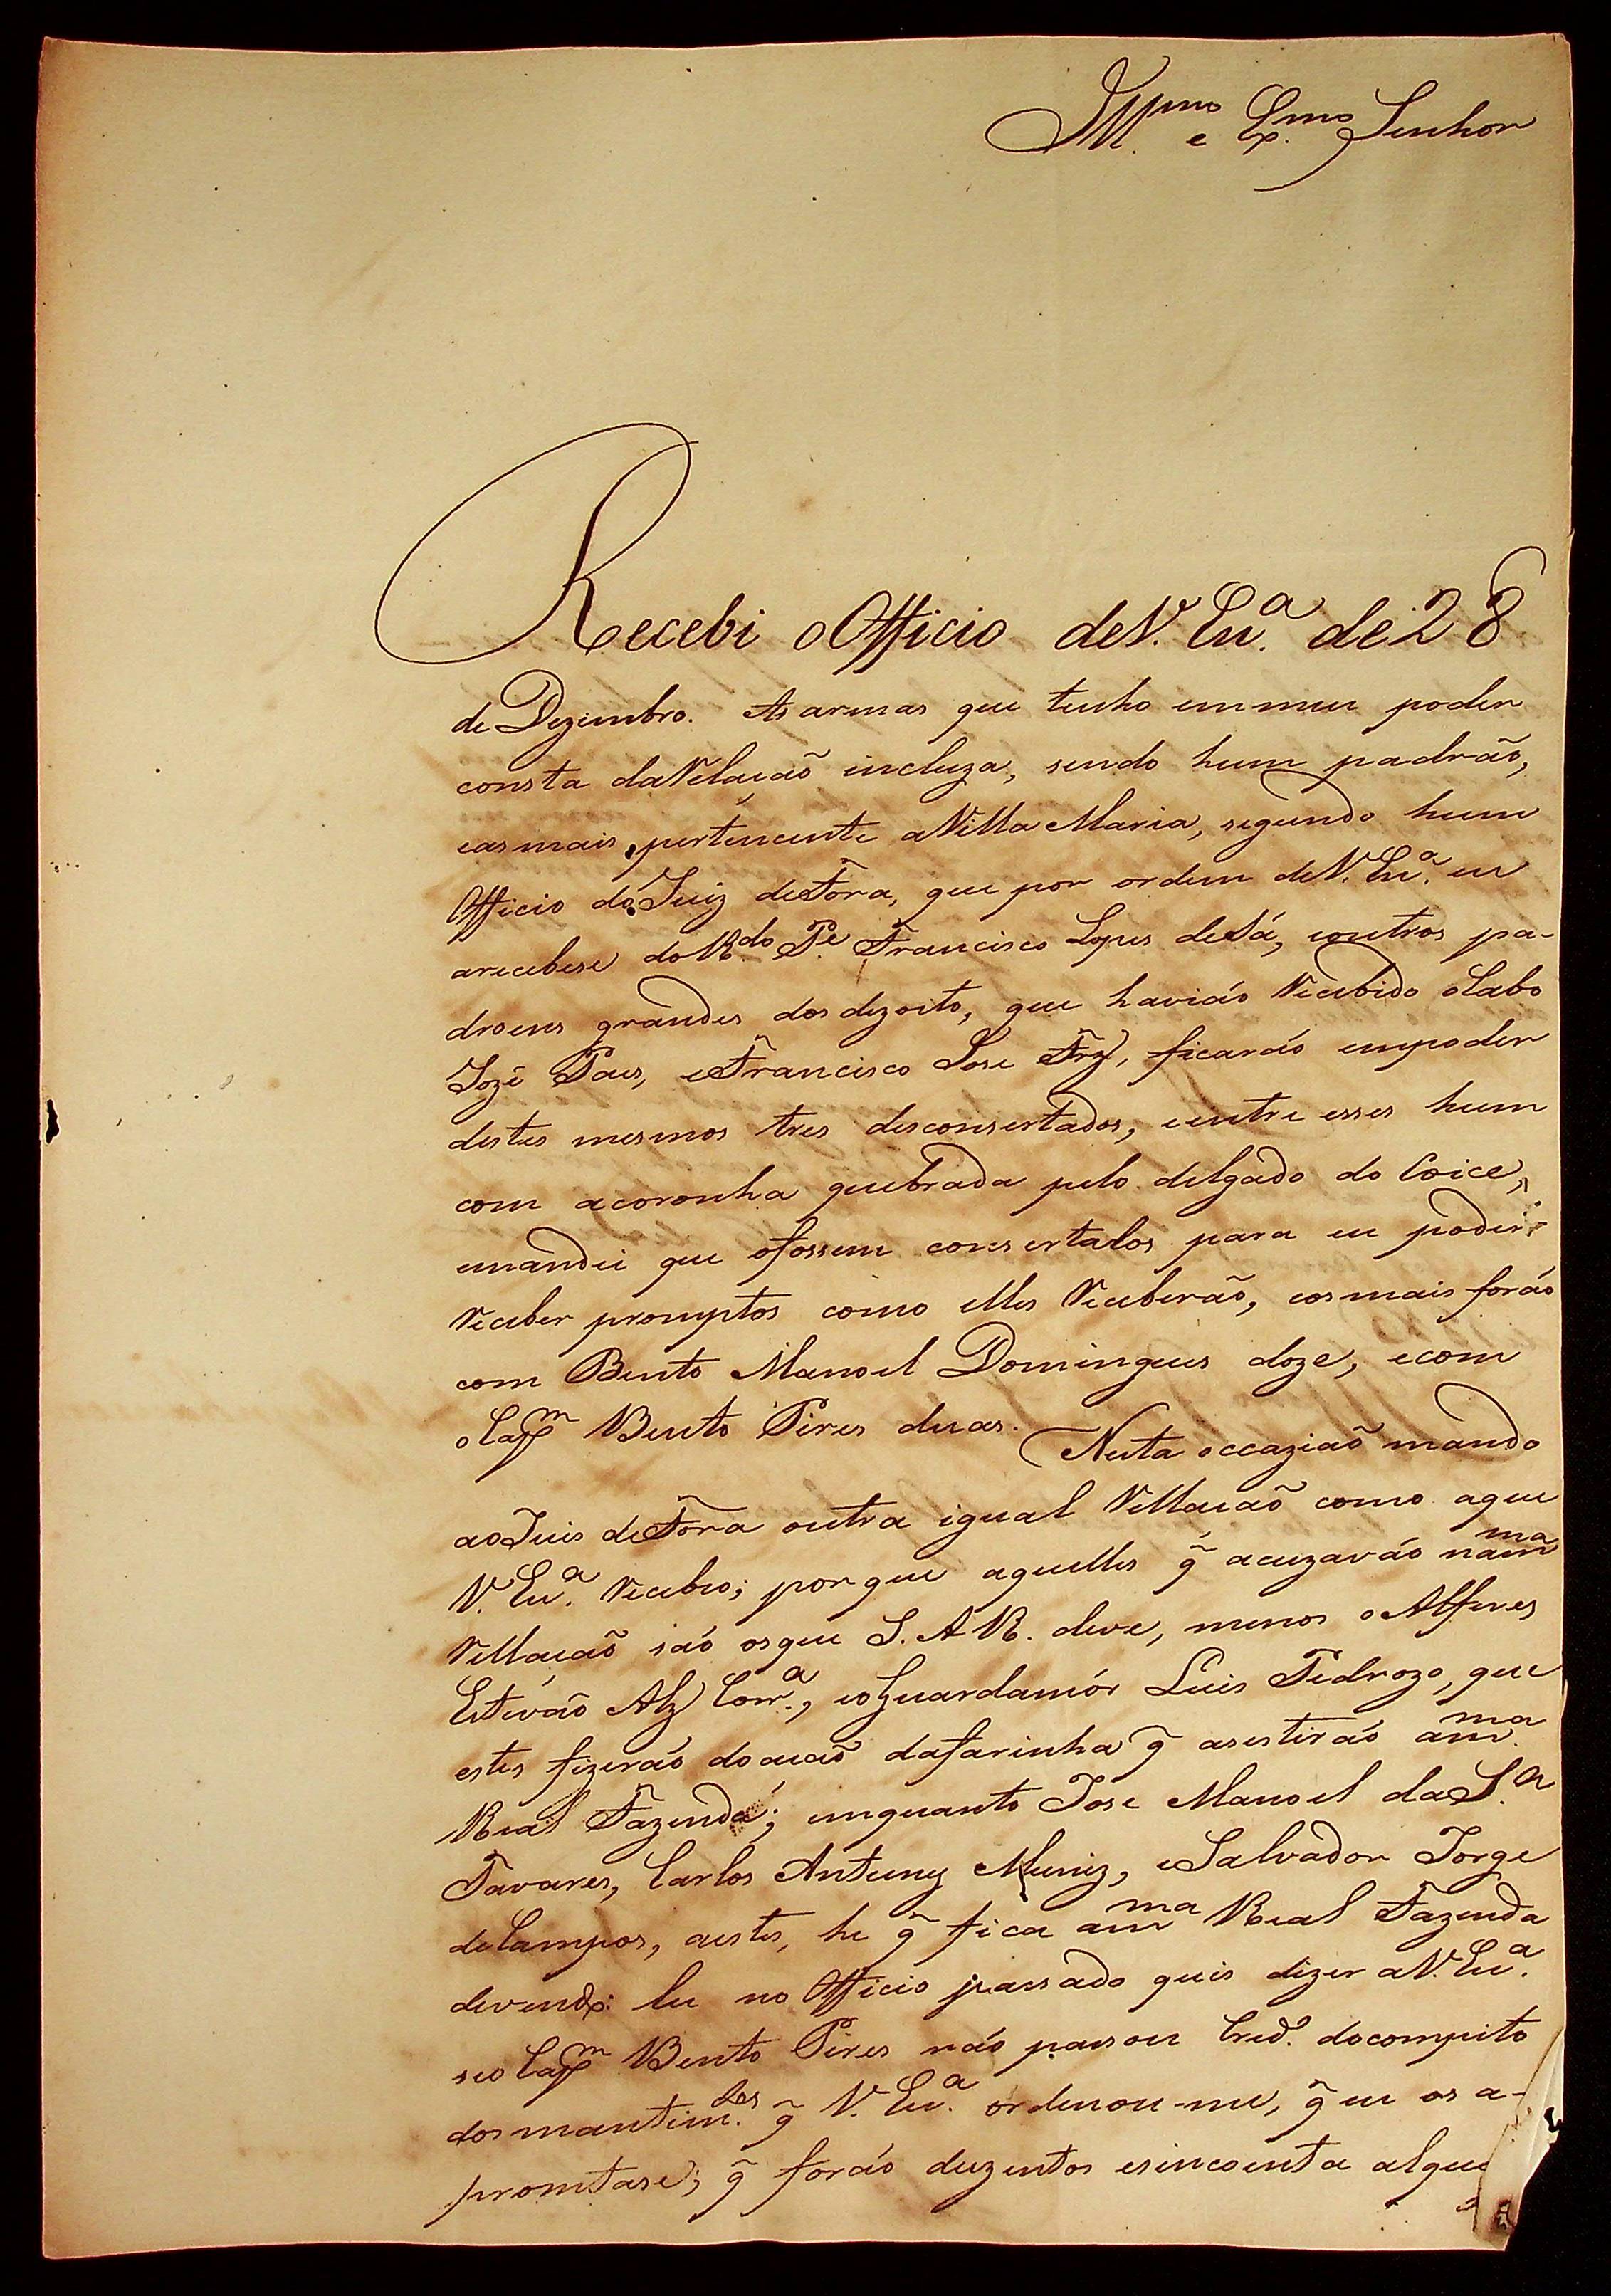 Ill.mo e Ex.mo Senhor
Recebi o Officio de V. Ex.a de 28
de Dezembro. As armas que tenho em meu poder
consta da Relaçaõ incluza, sendo hum padrão,
eas mais, pertencente a Villa Maria, segundo hum
Officio do Juiz de Fora, que por ordem de V. Ex.a eu
arecebese do R.do P.e Francisco Lopes de Sá, eoutros pa-
droens grandes dos dezoito, que haviáo Recebido o Cabo
Jozé Paes, e Francisco Jose Frz, ficaráo empoder
destes mesmos tres desconsertados, eentre esses hum
com acoronha quebrada pelo delgado do Coice,
emandei que ofossem consertalos para eu poder
Receber promptos como elles Receberão, eos mais foráo
com Bento Manoel Domingues doze, ecom
o Cap.m Bento Pires duas. Nesta occaziaõ mando
ao Juis de Fora outra igual Rellaçaõ como aque
V. Ex.a Recebeo; porque aquelles q̃ acuzaráo nam.ma
Rellaçaõ sáo os que S. A R. deve, menos o Alferes
Estevão Alz Corr.a, eo Guardamór Luis Pedrozo, que
estes fizeráo doaçaõ dafarinha q̃ asestiráo am.ma
Real Fazenda; emquanto Jose Manoel da S.a
Tavares, Carlos Antunz Muniz, e Salvador Jorge
de Campos, aestes, he q̃ fica am.ma Real Fazenda
devendo: Eu no Officio passado quis dizer a V. Ex.a
seo Cap.m Bento Pires náo passou Cred.o docompito
dos mantim.tos q̃ V. Ex.a ordenou-me, q̃ eu os a-
promtase; q̃ foráo duzentos esincoenta alquei